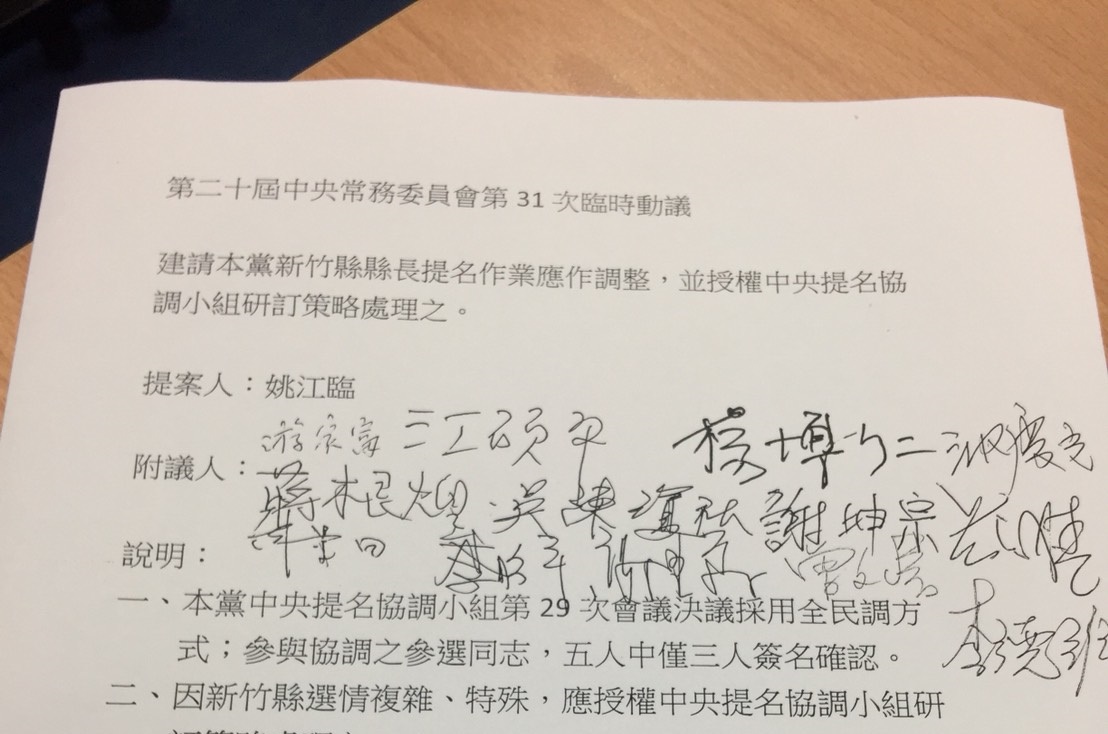 第二十屆中央常務委員會第 31 次臨時動議
建請本黨新竹縣縣長提名作業應作調整，並授權中央提名協
調小組研訂策略處理之。
提案人：姚江臨
游宗富 江碩平
附議人：
蔣根煌 吳陳 謝坤宗
說明：
李德
一、本黨中央提名協調小組第 29 次會議決議採用全民調方
式；參與協調之參選同志，五人中僅三人簽名確認。
二、因新竹縣選情複雜、特殊，應授權中央提名協調小組研